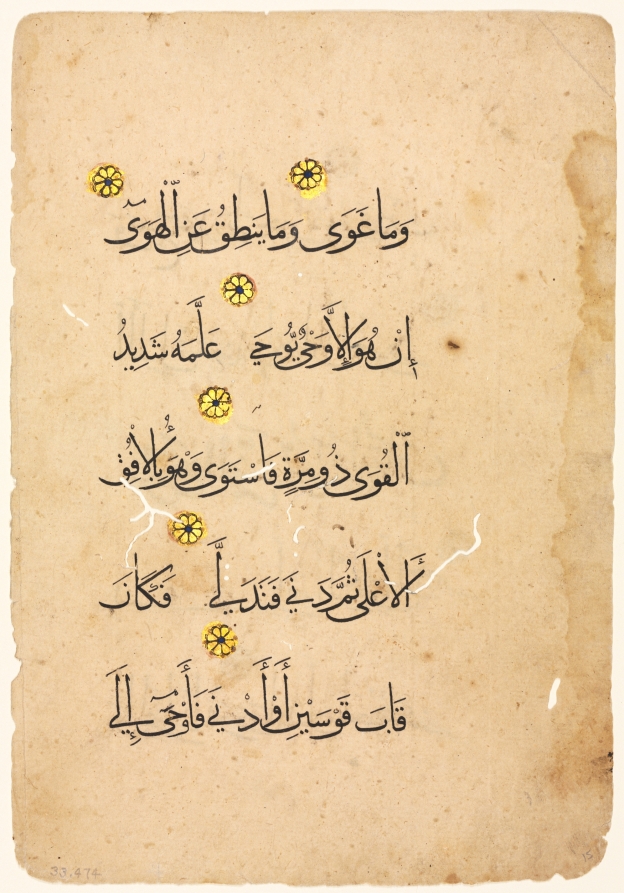 وَمَا غَوَى وَمَا يَنطِقُ عَنِ الْهَوَى
إِنْ هُوَ إِلَّا وَحْيٌ يُوحَى عَلَّمَهُ شَدِيدُ
الْقُوَى ذُو مِرَّةٍ فَاسْتَوَى وَهُوَ بِالْأُفُقِ
الْأَعْلَى ثُمَّ دَنَى فَتَدَلَّى فَكَانَ
قَابَ قَوْسَيْنِ أَوْ أَدْنَى فَأَوْحَى إِلَى
33.474
15